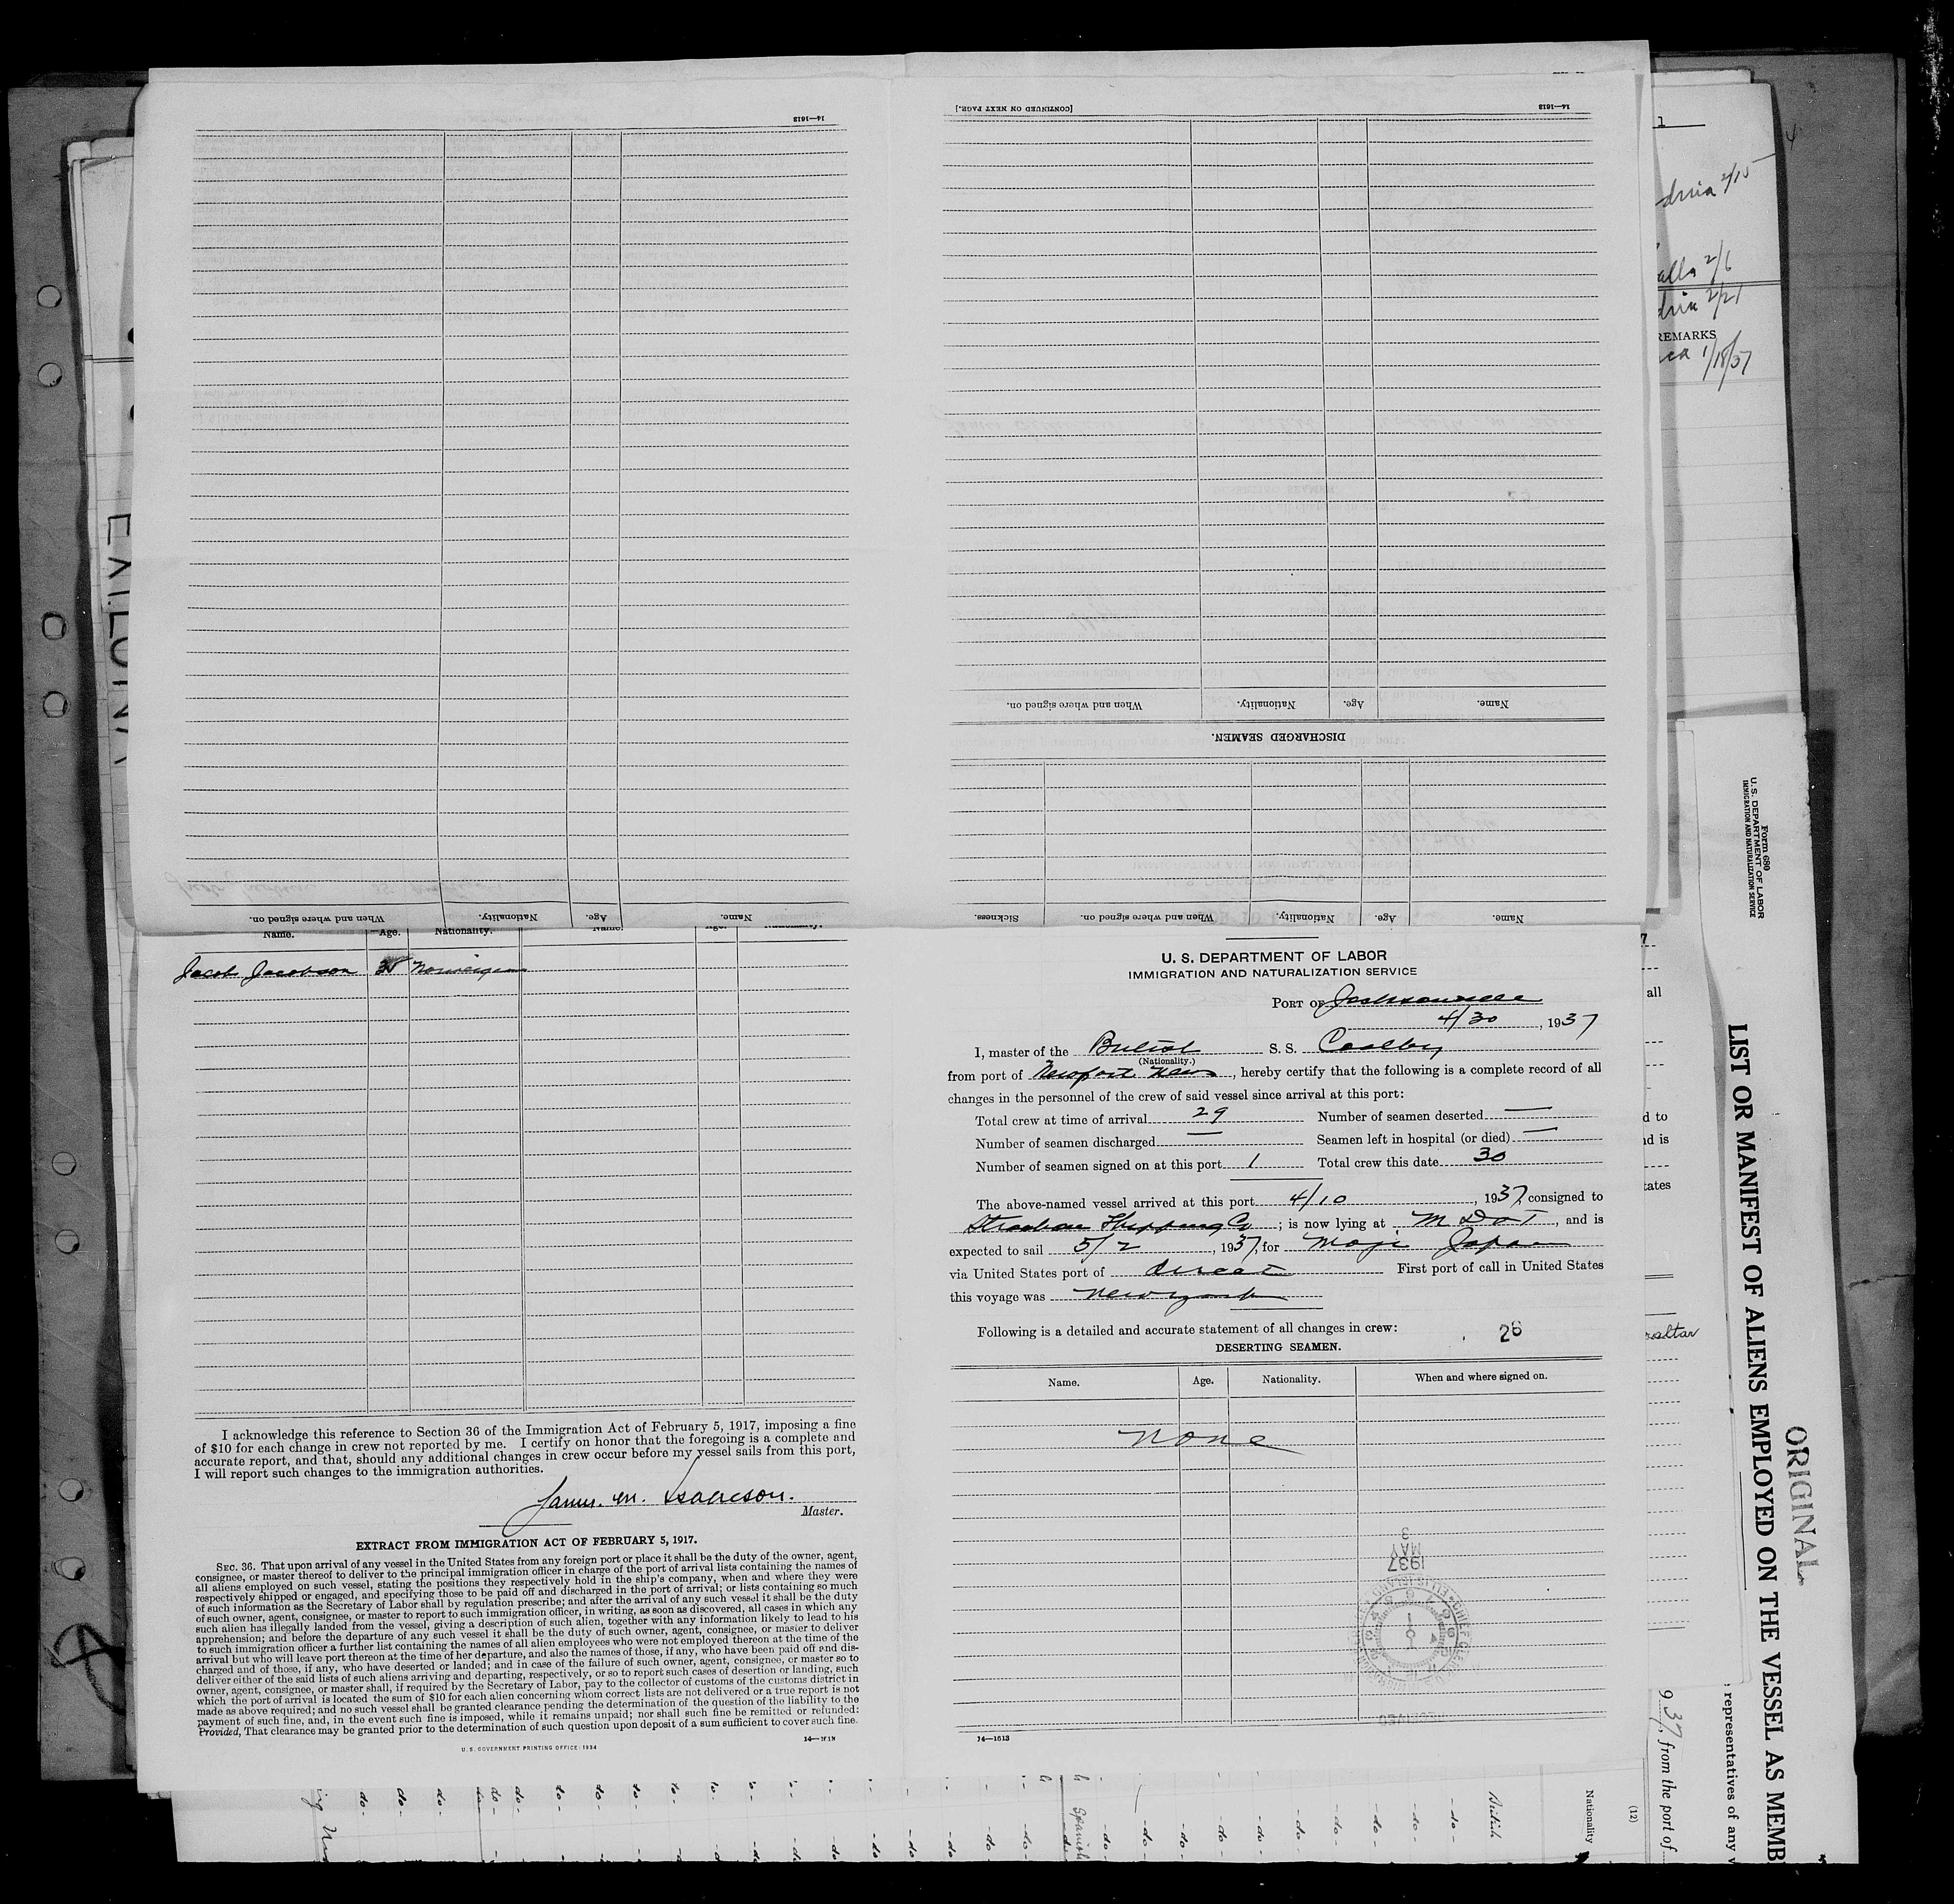 14—1613
When and where signed on.
Nationality.
Age.
Name.
[CONTINUED ON NEXT PAGE.]
14—1613
When and where signed on.
Nationality.
Age.
Name.
DISCHARGED SEAMEN.
Sickness.
When and where signed on.
Nationality.
Age.
Name.
Name. Age. Nationality. Name.
Jacob Jacobson 35 Norwegian
I acknowledge this reference to Section 36 of the Immigration Act of February 5, 1917, imposing a fine
of $10 for each change in crew not reported by me. I certify on honor that the foregoing is a complete and
accurate report, and that, should any additional changes in crew occur before my vessel sails from this port,
I will report such changes to the immigration authorities.
James. M. Isaacson.
Master.
EXTRACT FROM IMMIGRATION ACT OF FEBRUARY 5, 1917.
SEC. 36. That upon arrival of any vessel in the United States from any foreign port or place it shall be the duty of the owner, agent,
consignee, or master thereof to deliver to the principal immigration officer in charge of the port of arrival lists containing the names of
all aliens employed on such vessel, stating the positions they respectively hold in the ship's company, when and where they were
respectively shipped or engaged, and specifying those to be paid off and discharged in the port of arrival; or lists containing so much
of such information as the Secretary of Labor shall by regulation prescribe; and after the arrival of any such vessel it shall be the duty
of such owner, agent, consignee, or master to report to such immigration officer, in writing, as soon as discovered, all cases in which any
such alien has illegally landed from the vessel, giving a description of such alien, together with any information likely to lead to his
apprehension; and before the departure of any such vessel it shall be the duty of such owner, agent, consignee, or master to deliver
to such immigration officer a further list containing the names of all alien employees who were not employed thereon at the time of the
arrival but who will leave port thereon at the time of her departure, and also the names of those, if any, who have been paid off and dis-
charged and of those, if any, who have deserted or landed; and in case of the failure of such owner, agent, consignee, or master so to
deliver either of the said lists of such aliens arriving and departing, respectively, or so to report such cases of desertion or landing, such
owner, agent, consignee, or master shall, if required by the Secretary of Labor, pay to the collector of customs of the customs district in
which the port of arrival is located the sum of $10 for each alien concerning whom correct lists are not delivered or a true report is not
made as above required; and no such vessel shall be granted clearance pending the determination of the question of the liability to the
payment of such fine, and, in the event such fine is imposed, while it remains unpaid; nor shall such fine be remitted or refunded:
Provided, That clearance may be granted prior to the determination of such question upon deposit of a sum sufficient to cover such fine.
U. S. GOVERNMENT PRINTING OFFICE: 1934
U. S. DEPARTMENT OF LABOR
IMMIGRATION AND NATURALIZATION SERVICE
PORT OF Jacksonville
4/30, 1937
I, master of the British S. S. Coalby
(Nationality.)
from port of Newport News, hereby certify that the following is a complete record of all
changes in the personnel of the crew of said vessel since arrival at this port:
Total crew at time of arrival 29 Number of seamen deserted —
Number of seamen discharged — Seamen left in hospital (or died) —
Number of seamen signed on at this port 1 Total crew this date 30
The above-named vessel arrived at this port 4/10, 1937, consigned to
Strachan Shipping Co; is now lying at M D O T, and is
expected to sail 5/2, 1937, for Moji Japan
via United States port of direct First port of call in United States
this voyage was New york
Following is a detailed and accurate statement of all changes in crew:
26
DESERTING SEAMEN.
Name. Age. Nationality. When and where signed on.
none
1937
MAY
3
RECEIVED
14—1613
EXILONA
REMARKS
1/18/37
Form 680
U. S. DEPARTMENT OF LABOR
IMMIGRATION AND NATURALIZATION SERVICE
ORIGINAL
LIST OR MANIFEST OF ALIENS EMPLOYED ON THE VESSEL AS MEMB
representatives of any v
9 37, from the port of
(12)
Nationality
British
Spanish